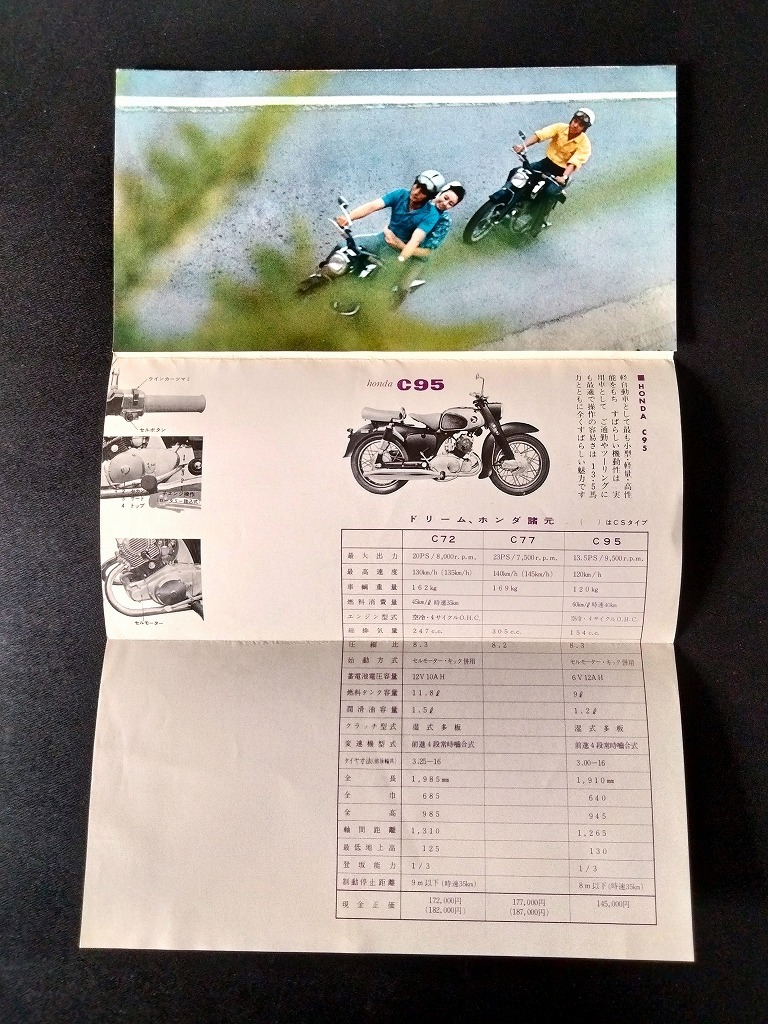 ウインカーツマミ
セルボタン
4 トップ
チエンジ操作
(ロータリー踏込式)
セルモーター
honda C95
■HONDA C95
軽自動車として最も小型・軽量・高性
能をもち すばらしい機動性は 実
用車として ご通勤やツーリングに
も最適で操作の容易さは 13・5馬
力とともに全くすばらしい魅力です
ドリーム、ホンダ諸元 ( )はCSタイプ
C72 C77 C95
最大出力 20PS/8,000r.p.m. 23PS/7,500r.p.m. 13.5PS/9,500r.p.m.
最高速度 130km/h (135km/h) 140km/h (145km/h) 120km/h
車輌重量 162kg 169kg 120kg
燃料消費量 45km/ℓ 時速35km 60km/ℓ 時速40km
エンジン型式 空冷・4サイクルO.H.C. 空冷・4サイクルO.H.C.
総排気量 247c.c. 305c.c. 154c.c.
圧縮比 8.3 8.2 8.3
始動方式 セルモーター・キック併用 セルモーター・キック併用
蓄電池電圧容量 12V10AH 6V12AH
燃料タンク容量 11.8ℓ 9ℓ
潤滑油容量 1.5ℓ 1.2ℓ
クラッチ型式 湿式多板 湿式多板
変速機型式 前進4段常時噛合式 前進4段常時噛合式
タイヤ寸法(前後輪共) 3.25—16 3.00—16
全長 1,985mm 1,910mm
全巾 685 640
全高 985 945
軸間距離 1,310 1,265
最低地上高 125 130
登坂能力 1/3 1/3
制動停止距離 9m以下(時速35km) 8m以下(時速35km)
現金正価 172,000円 177,000円 145,000円
(182,000円) (187,000円)